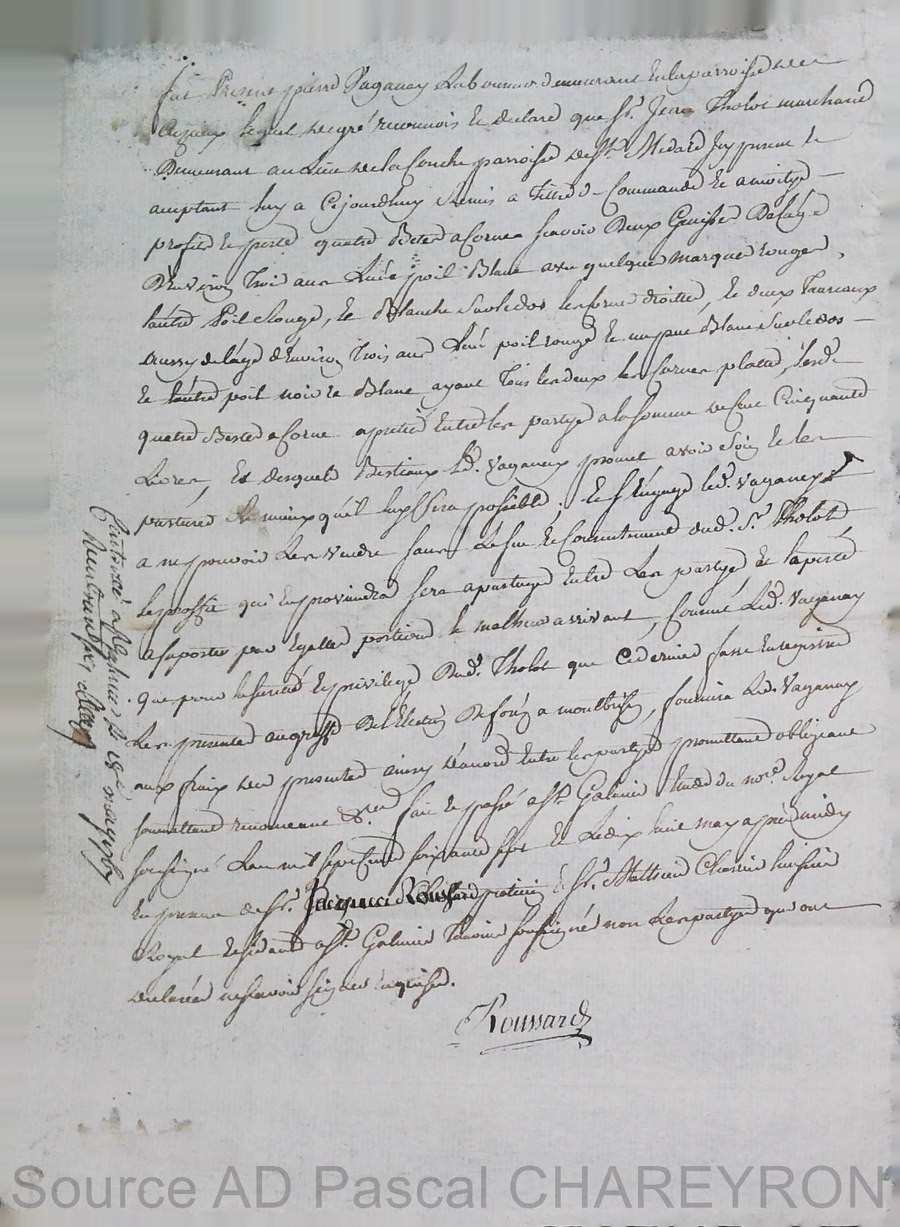 fut Present pierre Vaganay Laboureur demeurant en la parroisse de
lequel de gré reconnois et declare que Sr. Jean Tholot marchand
Demeurant au Lieu de la Conche parroisse de St. Medard icy present et
acceptant luy a cejourdhuy Remis a tittre de Commande et a moitye
profit et perte quatre Betes a Corne sçavoir Deux Genisse De lage
Denviron trois ans Lune poil Blanc avec quelque marque rouge,
Lautre Poil Rouge, et Blanche sur le dos les corne droitte, et deux Taureaux
aussy de lage d'Environ trois ans Luné poil rougé et un peu Blanc sur le dos
et Lautre poil noir et Blanc ayant Tous les deux les Cornes platte, Lesd.
quatre Bestes a Corne apretié Entre les partye a la somme de Cent Cinquante
Livres, Et desquels Bestiaux Led. Vaganay promet avoir soin et les
pasturer le mieux qu'il luy sera possible, et s'Engage led. Vaganay
a ne pouvoir Les vendre sans Le sçu et Consentement dud. Sr. Tholot
Le proffit qui En proviendra sera apartagé Entre Les partye et la perte
a suporter par Egalle portion le malheur arrivant, Consent Led. Vaganay
que pour la sureté et privilege Dud. Tholot que ce dernier fasse Enregistré
Les presentes au greffe De l'Election De forez a montbrison, fournira Led. Vaganay
aux fraix des presentes ainsy Daccord Entre les partye promettant obligeant
soumettant renonceant &c. fait et passé a St. Galmier Etude du nore. Royal
soussigné Lan mil sept cent soixante sept et Le dix huit may après midy
En presence de Sr. Jacques Roussard praticien et Sr. Mathieu Royal
Royal Residant a St. Galmier Temoins soussigné non Les partye qui ont
declarée ne sçavoir signer Enquise.
Roussard
a St Galmier Le 28 may 1767